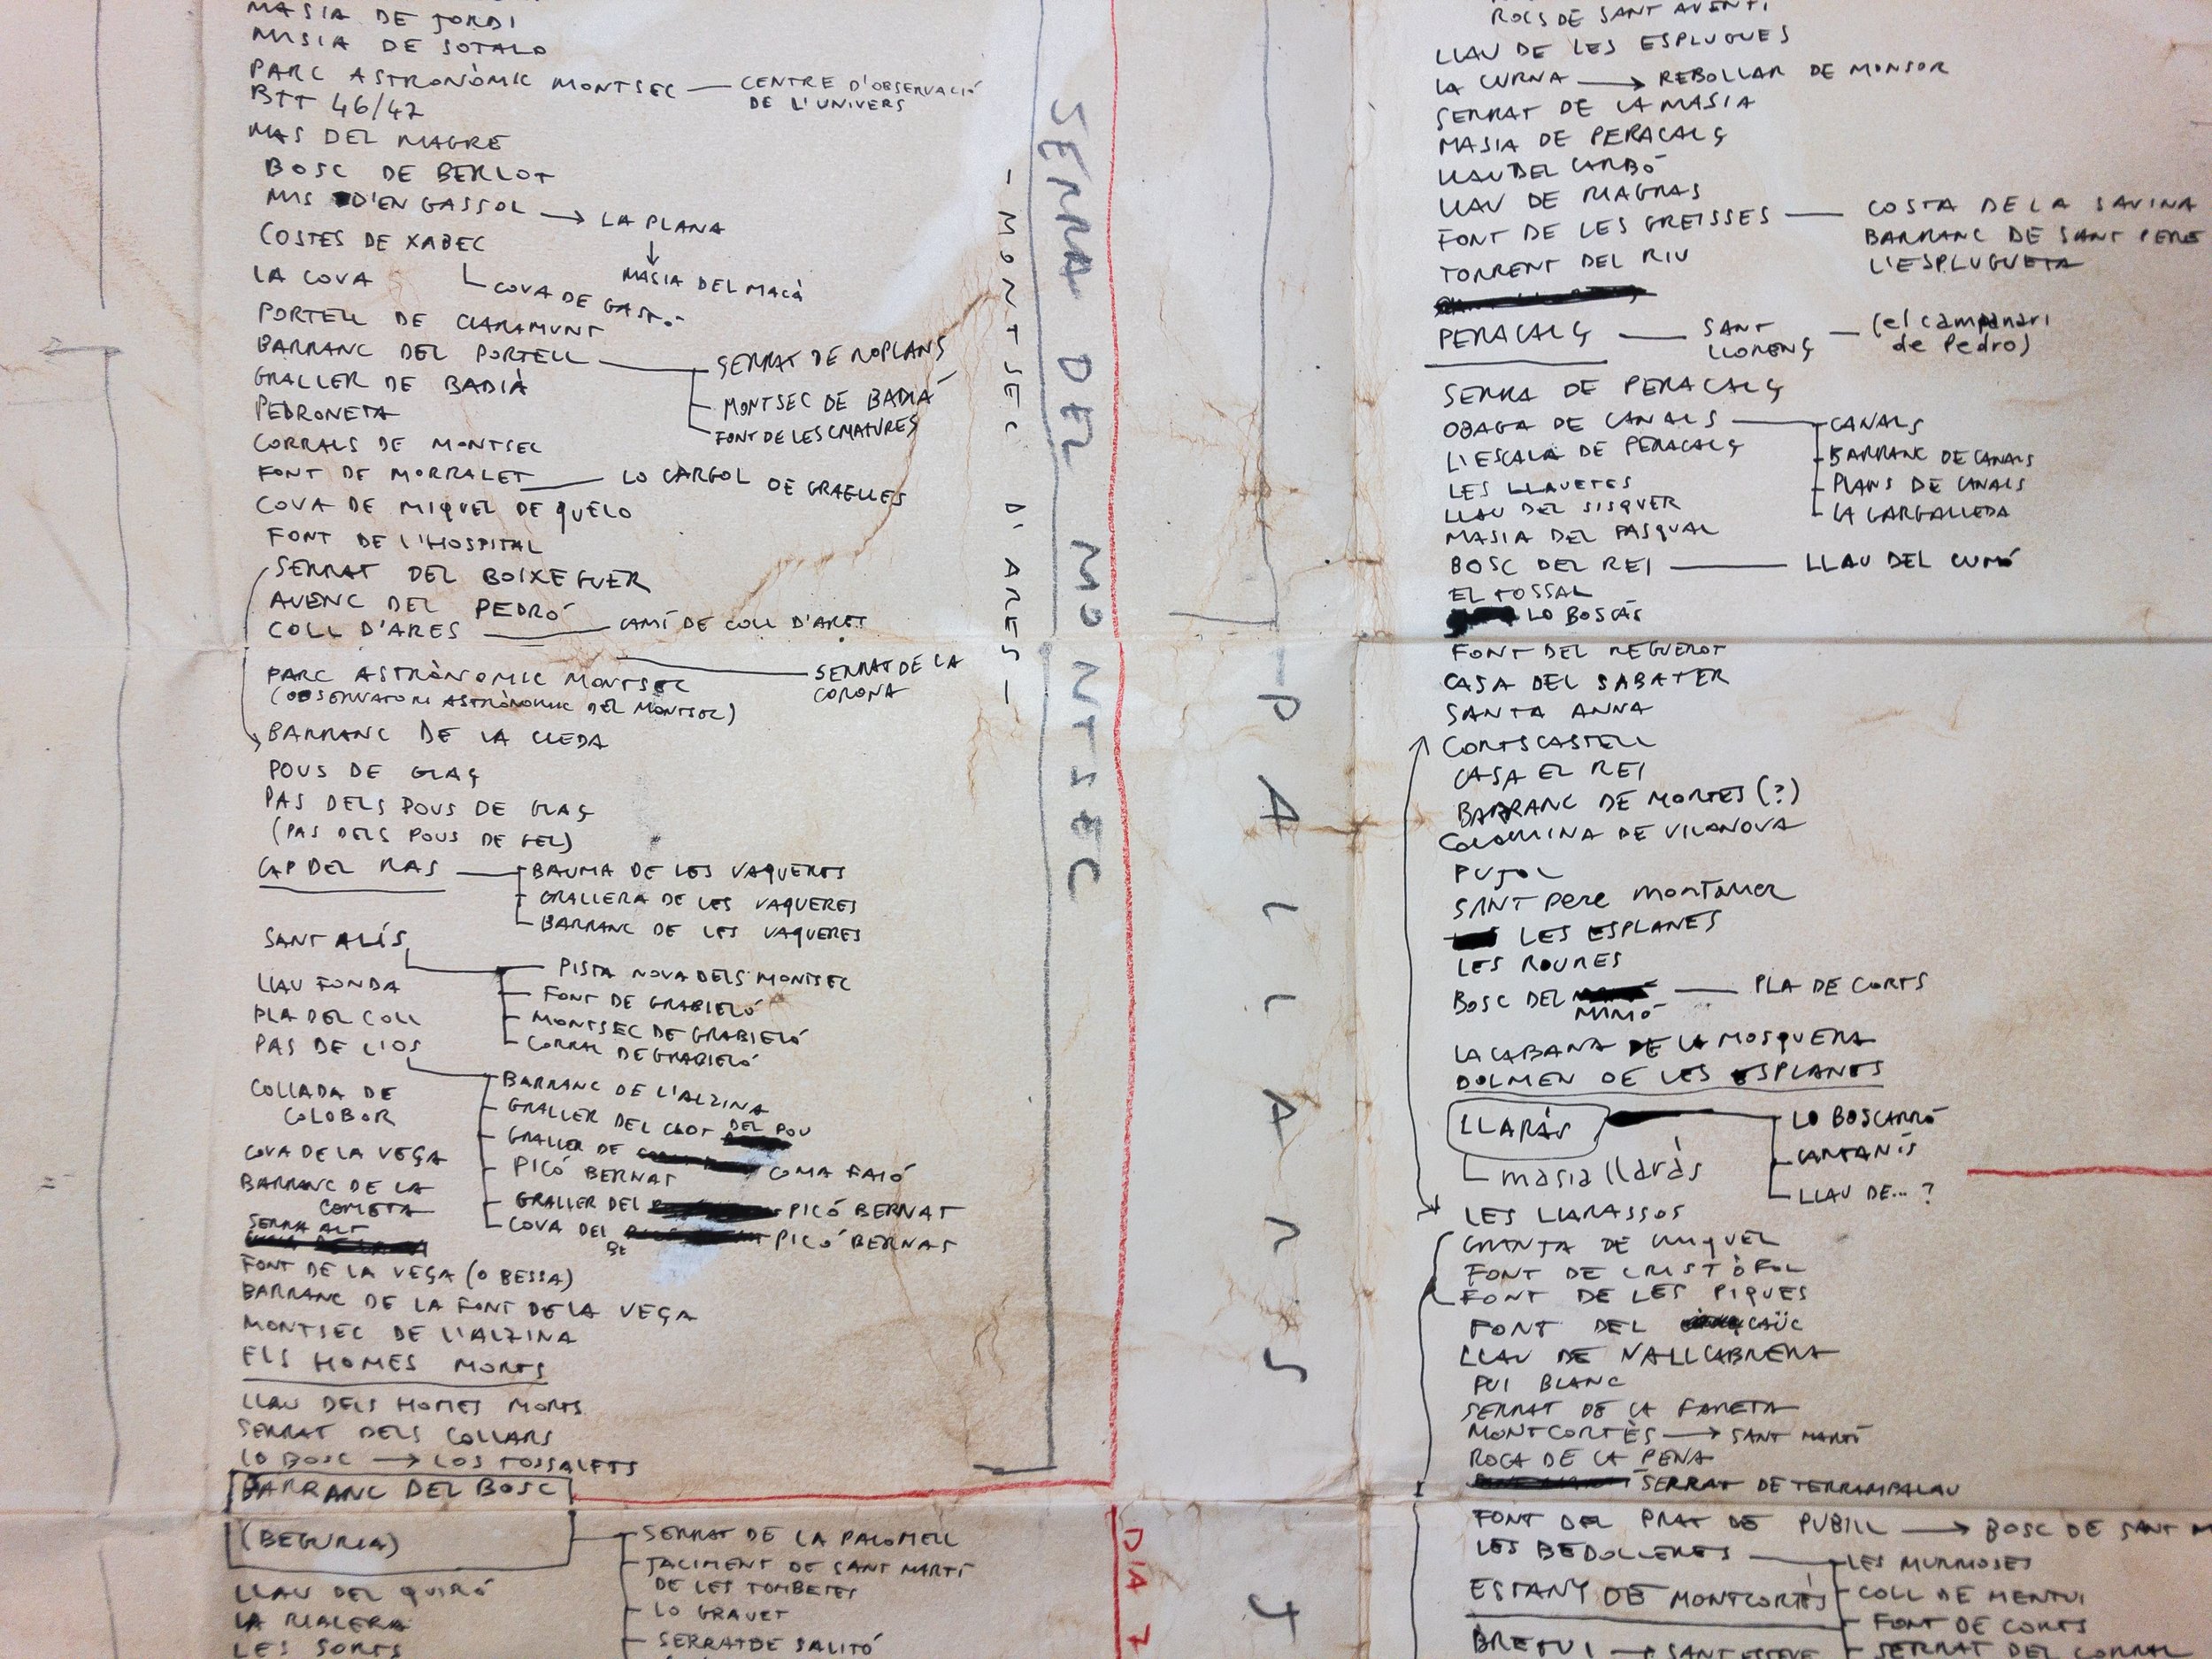 MASIA DE JORDI
MASIA DE SOTALO
PARC ASTRONÒMIC MONTSEC — CENTRE D'OBSERVACIÓ
DE L'UNIVERS
BTT 46/47
MAS DEL MAGRE
BOSC DE BERLOT
MAS D'EN GASSOL → LA PLANA
COSTES DE XABEC
↓
MASIA DEL MACÀ
LA COVA
COVA DE GASTÓ
PORTELL DE CLARAMUNT
BARRANC DEL PORTELL — SERRAT DE NOPLANS
GRALLER DE BADIÀ
MONTSEC DE BADIÀ
PEDRONETA
FONT DE LES CMATURES
CORRALS DE MONTSEC
FONT DE MORRALET — LO CARGOL DE GRAELLES
COVA DE MIQUEL DE QUELO
FONT DE L'HOSPITAL
SERRAT DEL BOIXEGUER
AVENC DEL PEDRÓ
COLL D'ARES — CAMÍ DE COLL D'ARES
PARC ASTRÒNOMIC MONTSEC — SERRAT DE LA
CORONA
(OBSERVATORI ASTRÒNOMIC DEL MONTSEC)
BARRANC DE LA CLEDA
POUS DE GLAÇ
PAS DELS POUS DE GLAÇ
(PAS DELS POUS DE GEL)
CAP DEL RAS — BAUMA DE LES VAQUERES
GRALLERA DE LES VAQUERES
BARRANC DE LES VAQUERES
SANT ALÍS
PISTA NOVA DELS MONTSEC
LLAU FONDA
FONT DE GRABIELÓ
PLA DEL COLL
MONTSEC DE GRABIELÓ
PAS DE LIOS
CORRAL DE GRABIELÓ
BARRANC DE L'ALZINA
COLLADA DE
COLOBOR
GRALLER DEL CLOT DEL POU
GRALLER DE COMA FAIÓ
COVA DE LA VEÇA
PICÓ BERNAT
BARRANC DE LA
COMETA
GRALLER DEL PICÓ BERNAT
SERRA ALT
COVA DEL PICÓ BERNAT
DE
FONT DE LA VEÇA (O BESSA)
BARRANC DE LA FONT DE LA VEÇA
MONTSEC DE L'ALZINA
ELS HOMES MORTS
LLAU DELS HOMES MORTS
SERRAT DELS COLLARS
LO BOSC → LOS TOSSALETS
BARRANC DEL BOSC
(BEGURIA)
SERRAT DE LA PALOMELL
JACIMENT DE SANT MARTÍ
DE LES TOMBETES
LLAU DEL QUIRÓ
LO GRAVET
LA RIALERA
SERRAT DE SALITÓ
LES SORTS
SERRA DEL MONTSEC
- MONTSEC D'ARES -
DIA 7
PALLARS
J
ROCS DE SANT AVENTÍ
LLAU DE LES ESPLUGUES
LA CURNA → REBOLLAR DE MONSOR
SERRAT DE LA MASIA
MASIA DE PERACALÇ
LLAU DEL CARBÓ
LLAU DE RIAGRAS
FONT DE LES GREISSES — COSTA DE LA SAVINA
BARRANC DE SANT PERE
L'ESPLUGUETA
TORRENT DEL RIU
PERACALÇ — SANT LLORENÇ — (el campanari
de Pedro)
SERRA DE PERACALÇ
OBAGA DE CANALS — CANALS
L'ESCALA DE PERACALÇ
BARRANC DE CANALS
LES LLAVETES
PLANS DE CANALS
LLAU DEL SISQUER
LA GARGALLEDA
MASIA DEL PASQUAL
BOSC DEL REI — LLAU DEL CUMÓ
EL TOSSAL
LO BOSCÀS
FONT DEL REGUEROT
CASA DEL SABATER
SANTA ANNA
CORTSCASTELL
CASA EL REI
BARRANC DE MORTES (?)
COLOMINA DE VILANOVA
PUJOL
SANT PERE MONTANER
LES ESPLANES
LES ROURES
BOSC DEL MIMÓ — PLA DE CORTS
LA CABANA DE LA MOSQUERA
DOLMEN DE LES ESPLANES
LLARÀS
LO BOSCARRÓ
CANTANÍS
masia llaràs
LLAU DE... ?
LES LLARASSOS
GRANJA DE MIQUEL
FONT DE CRISTÒFOL
FONT DE LES PIQUES
FONT DEL CAÜC
LLAU DE VALLCABRERA
PUI BLANC
SERRAT DE LA FARETA
MONTCORTÈS → SANT MARTÍ
ROCA DE LA PENA
SERRAT DE TERRAMPALAU
FONT DEL PRAT DE PUBILL → BOSC DE SANT
LES BEDOLLERES — LES MURMOSES
ESTANY DE MONTCORTÈS
COLL DE MENTUI
FONT DE CORTS
BRETUI → SANT ESTEVE
SERRAT DEL CORRAL